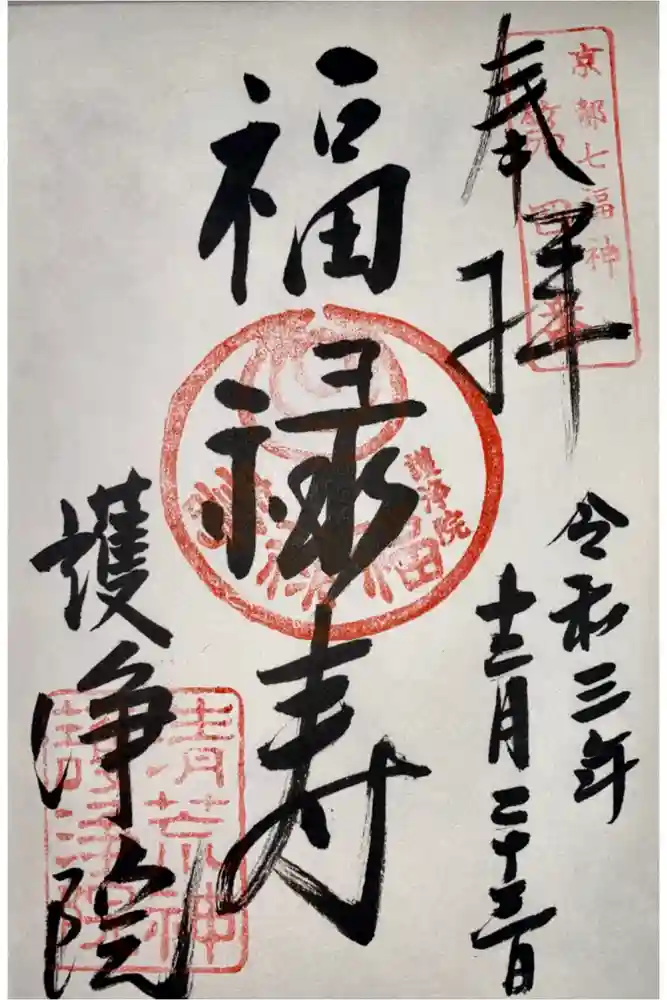 京都七福神
第四番
奉拝
令和三年
十二月二十三日
福禄寿
護浄院
福禄壽
護浄院
清荒神
護浄院